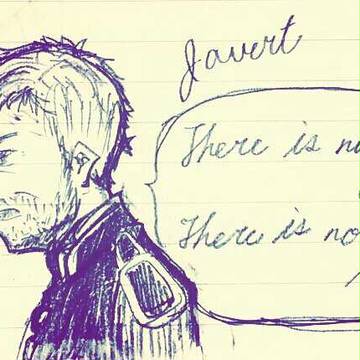 Javert
There is
There is no